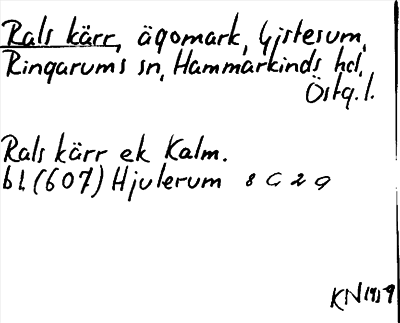 Rals kärr, ägomark, Gistesum,
Ringarums sn, Hammarkinds hd,
Östg. l.
Rals kärr ek Kalm.
bl. (607) Hjulerum 8 G 2 g
KN 1959